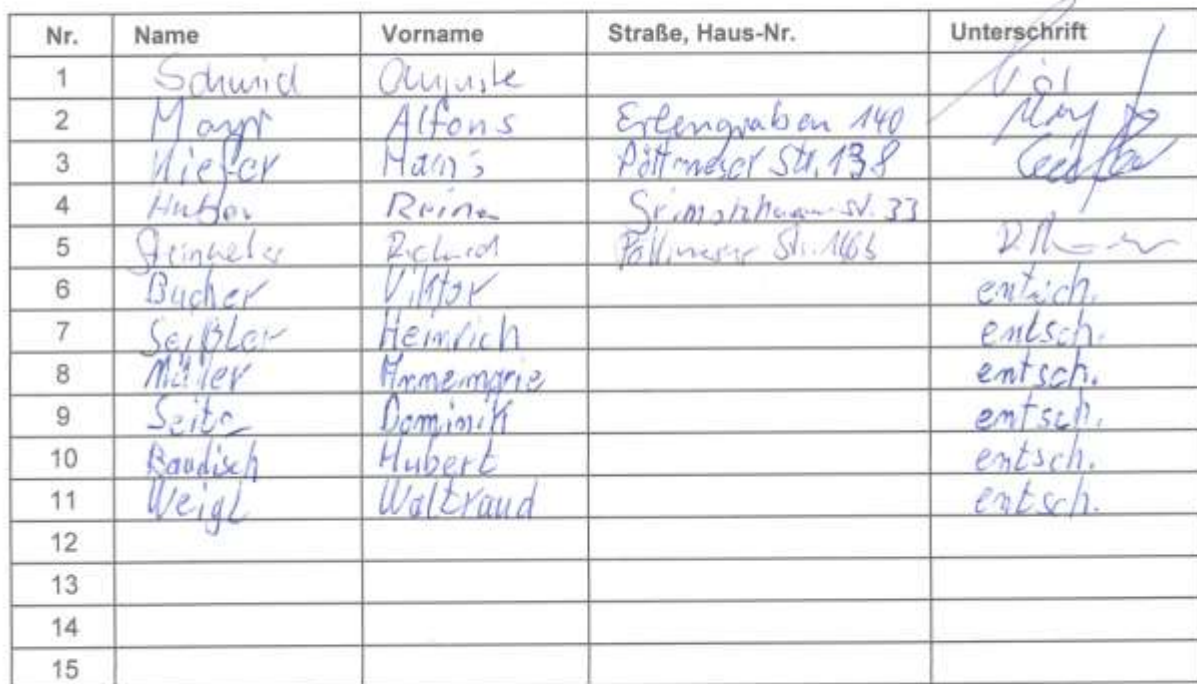 Nr. Name Vorname Straße, Haus-Nr. Unterschrift
1 Schmid Auguste
2 Mayr Alfons Erlengraben 140
3 Kiefer Hans Pöttmeser Str. 138
4 Huber Str. 33
5 Richard Pöttmeser Str.
6 Bucher Viktor entsch.
7 Seißler Heinrich entsch.
8 Müller Annemarie entsch.
9 Seitz Dominik entsch.
10 Baudisch Hubert entsch.
11 Weigl Waltraud entsch.
12
13
14
15